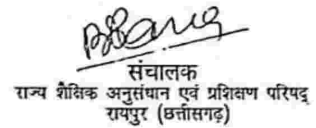 संचालक
राज्य शैक्षिक अनुसंधान एवं प्रशिक्षण परिषद्
रायपुर (छत्तीसगढ़)